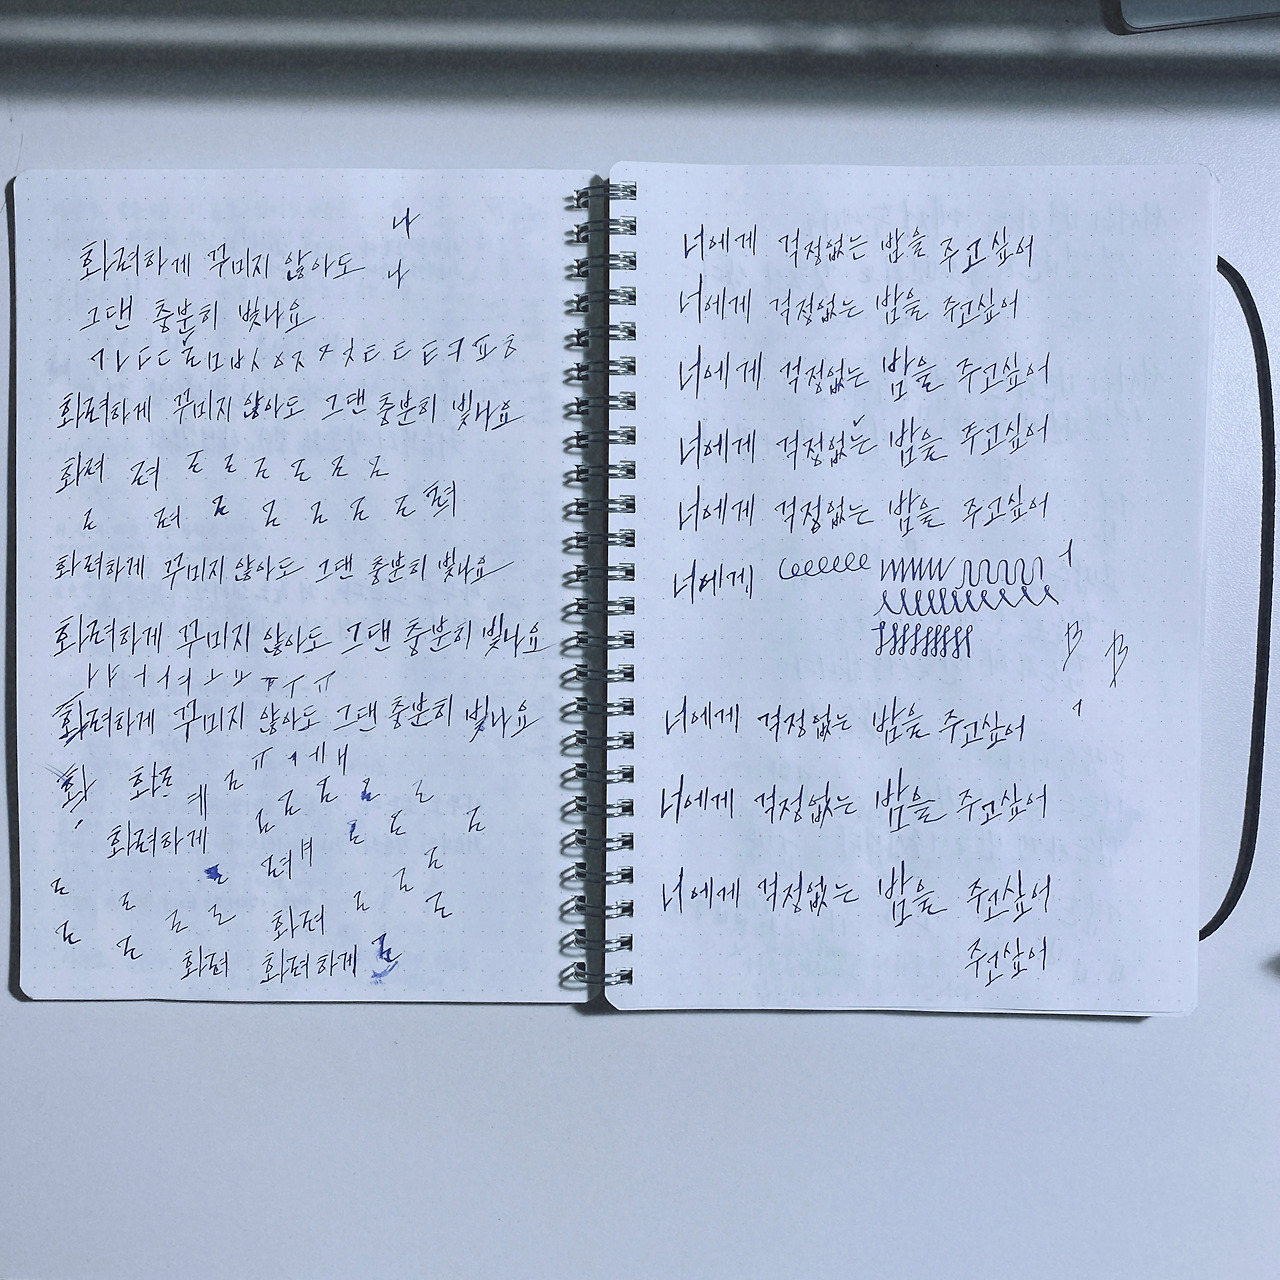 나
화려하게 꾸미지 않아도 나
그댄 충분히 빛나요
화려하게 꾸미지 않아도 그댄 충분히 빛나요
화려 려 ㄹ ㄹ ㄹ ㄹ ㄹ ㄹ
ㄹ 려 ㄹ ㄹ ㄹ ㄹ ㄹ 려
화려하게 꾸미지 않아도 그댄 충분히 빛나요
화려하게 꾸미지 않아도 그댄 충분히 빛나요
ㅏ ㅑ ㅓ ㅕ ㅗ ㅛ ㅜ ㅠ
화려하게 꾸미지 않아도 그댄 충분히 빛나요
화
화려하게 려
화려
화려 화려하게 ㄹ
너에게 걱정없는 밤을 주고싶어
너에게 걱정없는 밤을 주고싶어
너에게 걱정없는 밤을 주고싶어
너에게 걱정없는 밤을 주고싶어
너에게 걱정없는 밤을 주고싶어
너에게
너에게 걱정없는 밤을 주고싶어
너에게 걱정없는 밤을 주고싶어
너에게 걱정없는 밤을 주고싶어
주고싶어